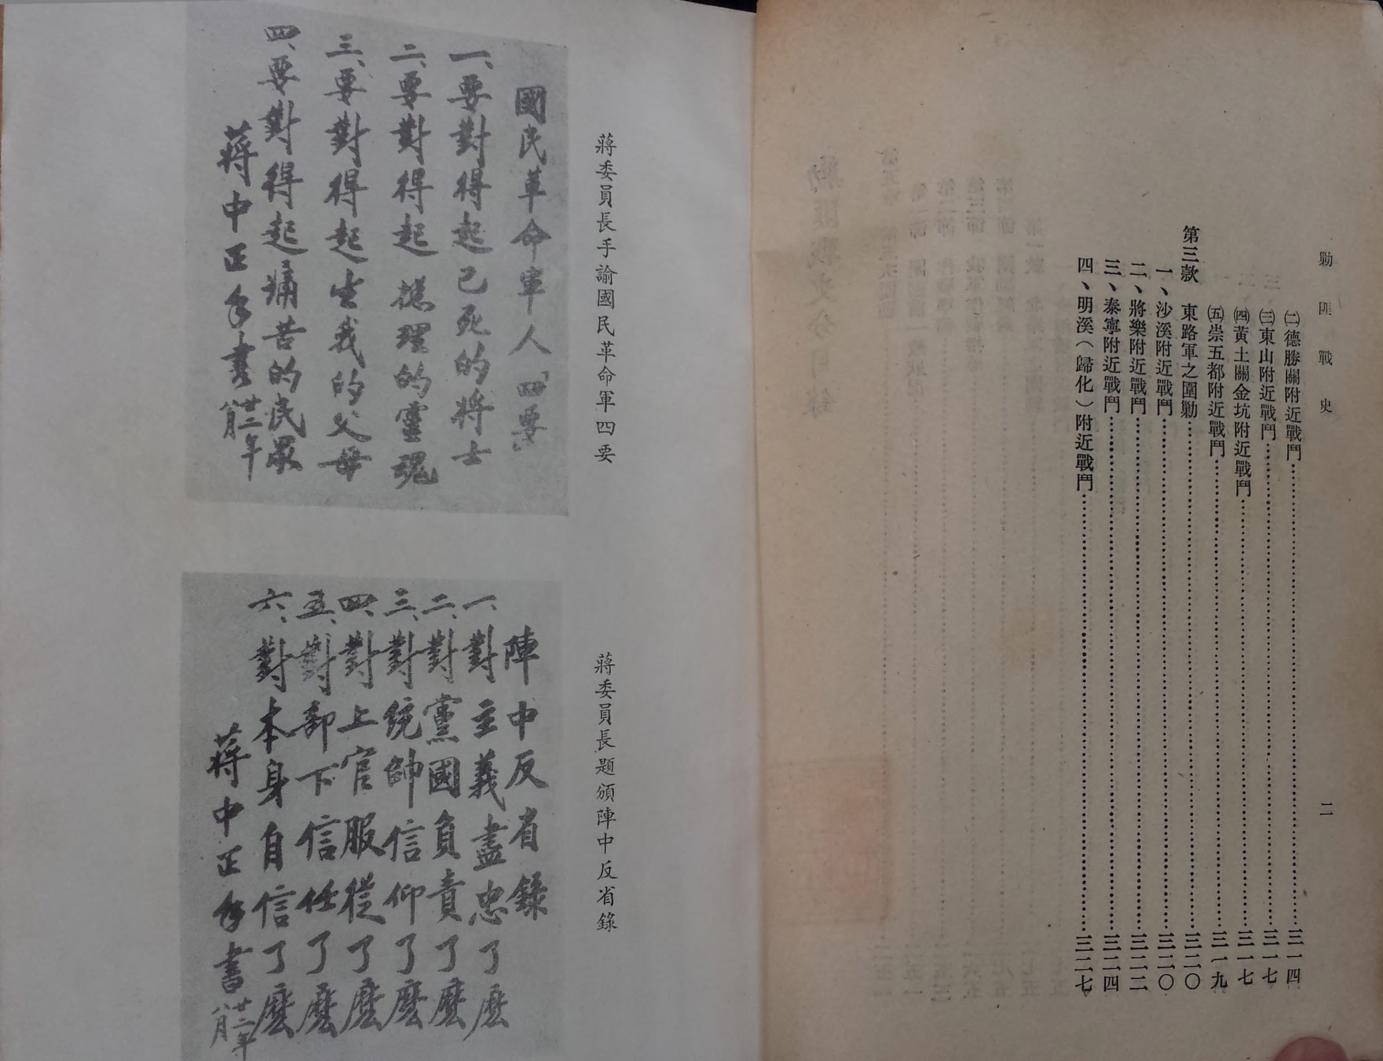 剿匪戰史
二
㈡德勝關附近戰鬥……三一四
㈢東山附近戰鬥……三一七
㈣黃土關金坑附近戰鬥……三一七
㈤崇五都附近戰鬥……三一九
第三款　東路軍之圍剿……三二〇
一、沙溪附近戰鬥……三二〇
二、將樂附近戰鬥……三二二
三、泰寧附近戰鬥……三二四
四、明溪（歸化）附近戰鬥……三二七
蔣委員長手諭國民革命軍四要
國民革命軍人「四要」
一、要對得起已死的將士
二、要對得起總理的靈魂
三、要對得起生我的父母
四、要對得起痛苦的民眾
蔣中正手書
蔣委員長題頒陣中反省錄
陣中反省錄
一、對主義盡忠了麼
二、對黨國負責了麼
三、對統帥信仰了麼
四、對上官服從了麼
五、對部下信任了麼
六、對本身自信了麼
蔣中正手書